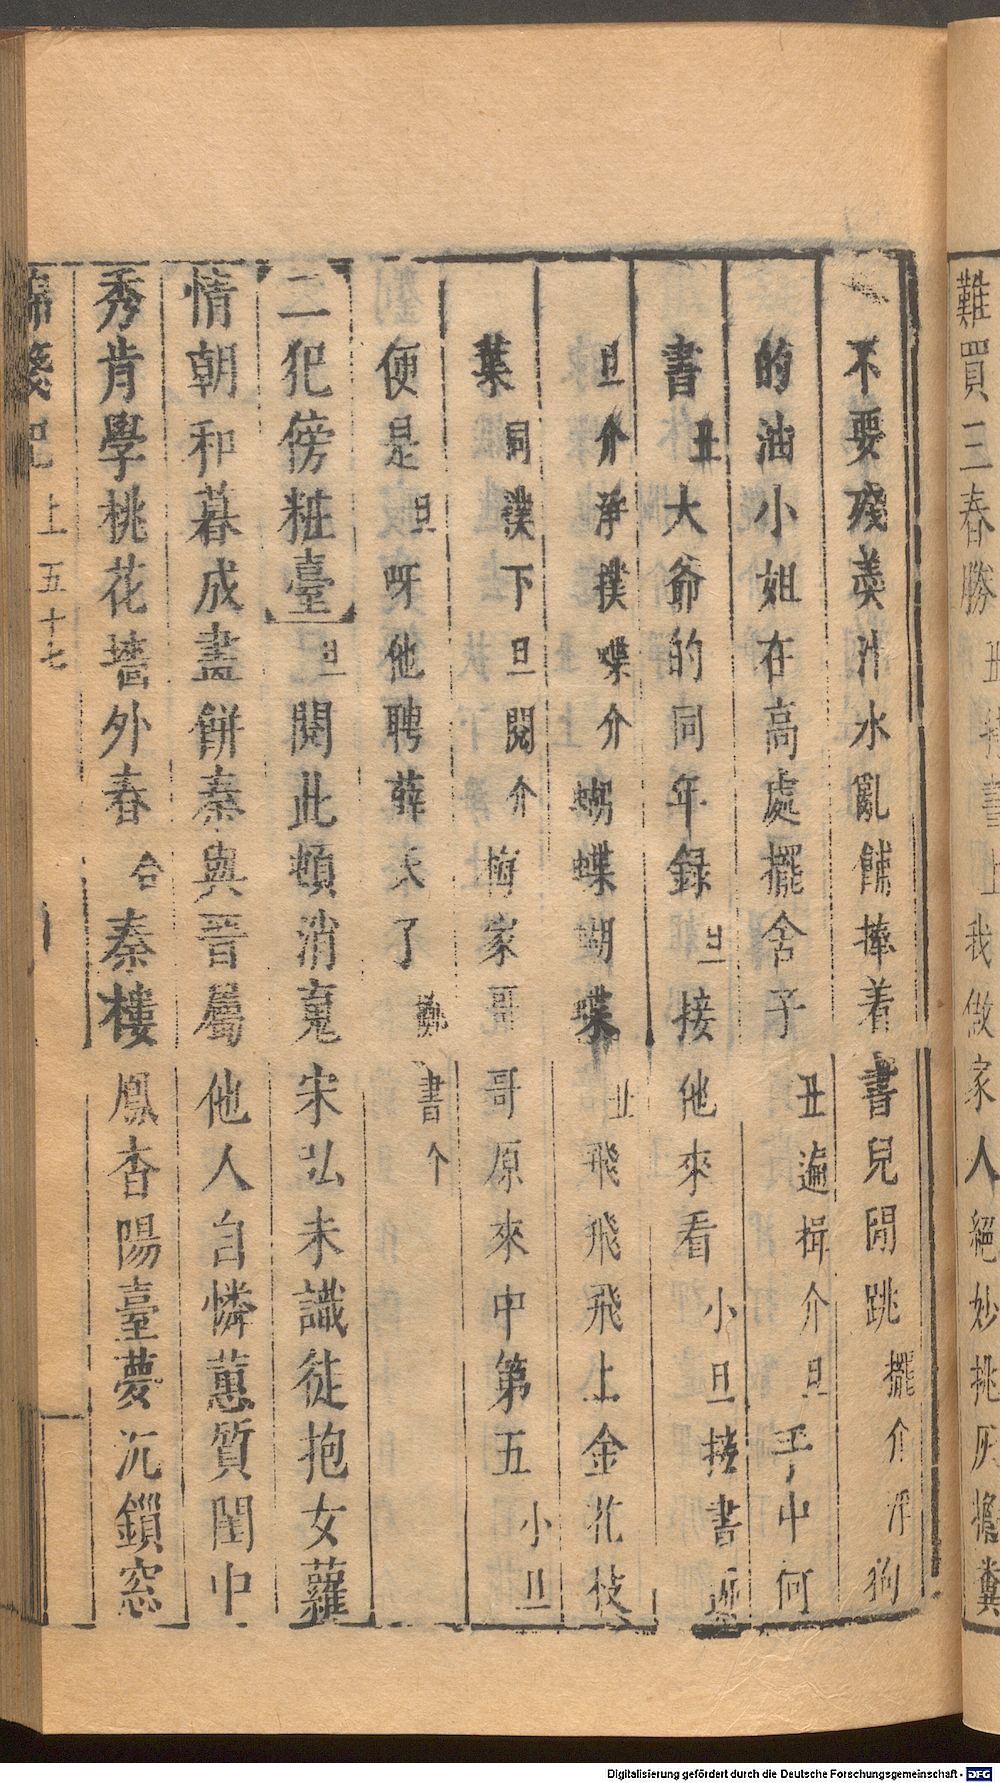 難買三春勝丑持書上我做家人絕妙挑灰擔糞
不要殘羹汁水亂餔捧着書兒鬧跳擺介淨狗
的油小姐在高處擺舍子丑遍揖介旦手中何
書丑大爺的同年録旦接他來看小旦接書遞
旦介淨撲蝶介蝴蝶蝴蝶丑飛飛飛上金花枝
葉同撲下旦閱介梅家哥哥原來中第五小旦
便是旦呀他聘薛夫了擲書介
二犯傍粧臺旦閱此頓消䰟宋弘未識徒抱女蘿
情朝和暮成畫餅秦與晋屬他人自憐蕙質閨中
秀肯學桃花墻外春合秦樓鳳杳陽臺夢沉鎖窓
錦箋記上五十七
Digitalisierung gefördert durch die Deutsche Forschungsgemeinschaft - DFG